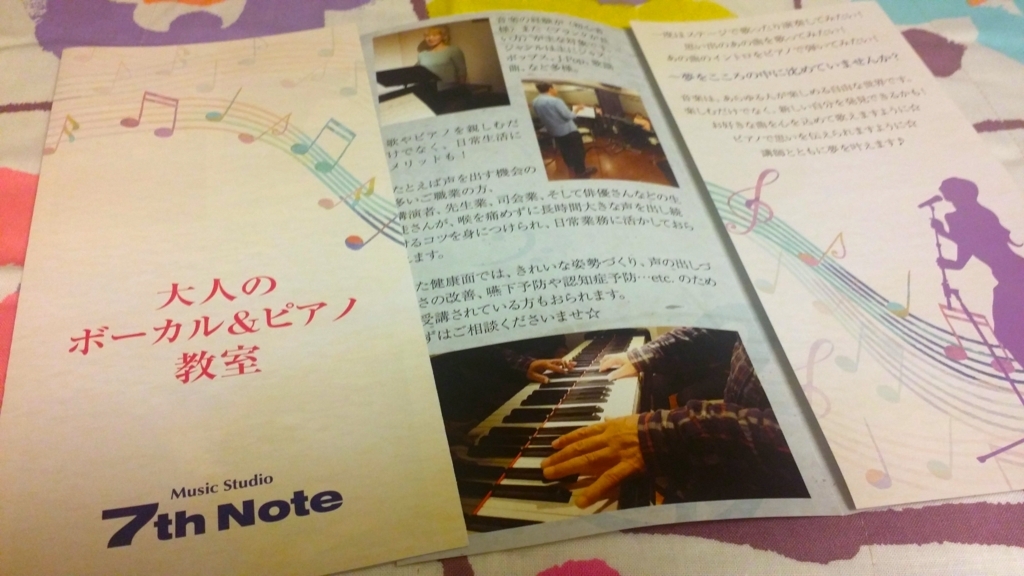 大人の
ボーカル&ピアノ
教室
Music Studio
7th Note
音楽の経験が
ジャンルは主にジャズ、
ポップス、J-Pop、歌謡
曲、など多様。
歌やピアノを親しむだ
けでなく、日常生活に
メリットも!
たとえば声を出す機会の
多いご職業の方、
講演者、先生業、司会業、そして俳優さんなどの生
徒さんが、喉を痛めずに長時間大きな声を出し続
けるコツを身につけられ、日常業務に活かしておら
れます。
た健康面では、きれいな姿勢づくり、声の出しづ
らさの改善、嚥下予防や認知症予防…etc. のため
受講されている方もおられます。
ずはご相談くださいませ☆
一度はステージで歌ったり演奏してみたい!
思い出のあの歌を歌ってみたい!
あの曲のイントロをピアノで弾いてみたい!
~夢をこころの中に沈めていませんか?
音楽は、あらゆる人が楽しめる自由な世界です。
楽しむだけでなく、新しい自分を発見できるかも!
お好きな曲を心を込めて歌えますように☆
ピアノで思いを伝えられますように☆
講師とともに夢を叶えます♪